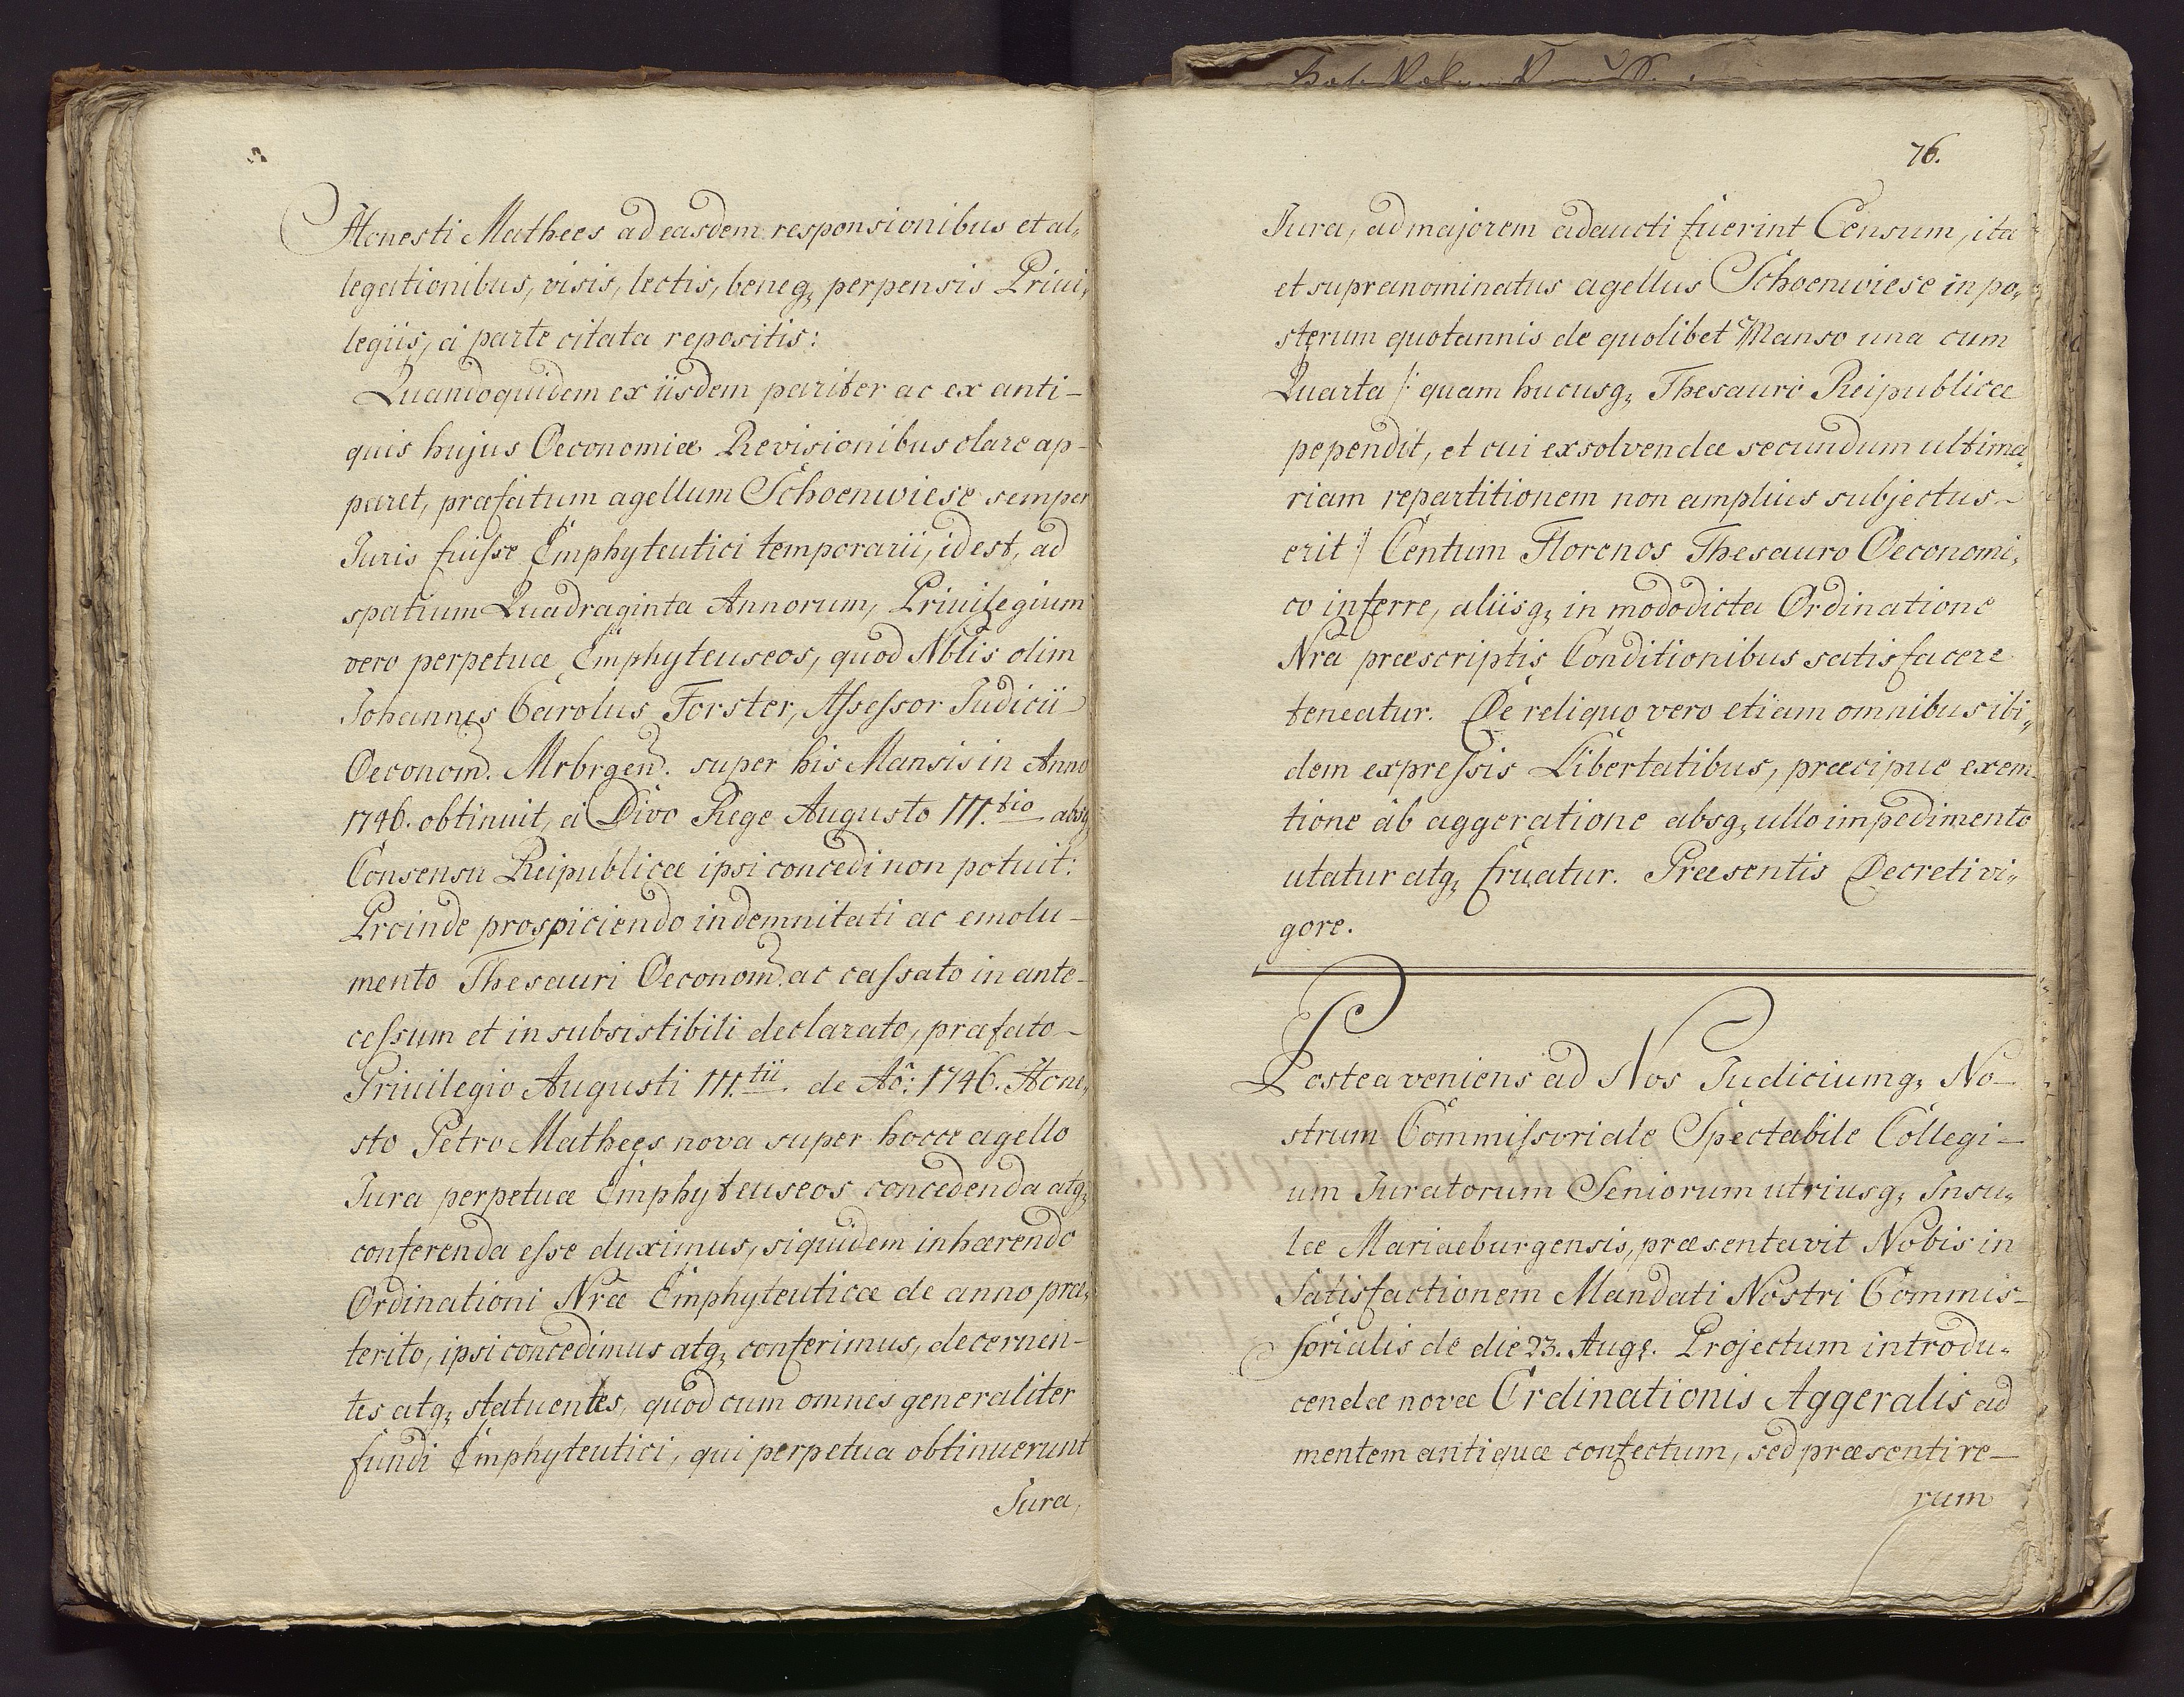 Honesti Mathees ad easdem responsionibus et al„
legationibus, visis, lectis, beneq; perpensis Privi„
legiis, à parte citata repositis:
Quandoquidem ex iisdem pariter ac ex anti-
quis hujus Oeconomiæ Revisionibus clare ap-
paret, præfatum agellum Schoenwiese semper
Juris fuisse Emphyteutici temporarii, id est, ad
spatium Quadraginta Annorum, Privilegium
vero perpetuæ Emphyteuseos, quod Nblis olim
Johannes Carolus Forster, Assessor Judicii
Oeconom. Mrbrgen. super his Mansis in Anno
1746. obtinuit, à Divo Rege Augusto III.tio absq;
Consensu Reipublicæ ipsi concedi non potuit:
Proinde prospiciendo indemnitati ac emolu-
mento Thesauri Oeconom. ac cassato in ante-
cessum et insubsistibili declarato, præfato-
Privilegio Augusti III.tii. de Aõ: 1746. Hone„
sto Petro Mathees nova super hocce agello
Jura perpetuæ Emphyteuseos concedenda atq;
conferenda esse duximus, siquidem inhærendo
Ordinationi Nræ Emphyteuticæ de anno præ„
terito, ipsi concedimus atq; conferimus, decernen-
tes atq; statuentes, quod cum omnes generaliter
fundi Emphyteutici, qui perpetua obtinuerunt
Jura,
76.
Jura, ad majorem adaucti fuerint Censum, ita
et supranominatus agellus Schoenwiese in po„
sterum quotannis de quolibet Manso una cum
Quarta /: quam hucusq; Thesauro Reipublicæ
pependit, et cui exsolvendæ secundum ultima„
riam repartitionem non amplius subjectus-
erit :/ Centum Florenos Thesauro Oeconomi„
co inferre, aliisq; in modo dicta Ordinatione
Nra præscriptis Conditionibus satisfacere
teneatur. De reliquo vero etiam omnibus ibi„
dem expressis Libertatibus, præcipue exem-
tione ab aggeratione absq; ullo impedimento
utatur atq; fruatur. Præsentis Decreti vi„
gore.
Postea veniens ad Nos Judiciumq; No-
strum Commissoriale Spectabile Collegi-
um Juratorum Seniorum utriusq; Insu„
læ Mariaeburgensis, præsentavit Nobis in
Satisfactionem Mandati Nostri Commis-
sorialis de die 23. Augs. Projectum introdu„
cendæ novæ Ordinationis Aggeralis ad
mentem antiquæ confectum, sed præsenti re-
rum